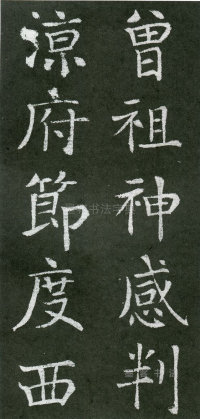 曾祖神感判
涼府節度西